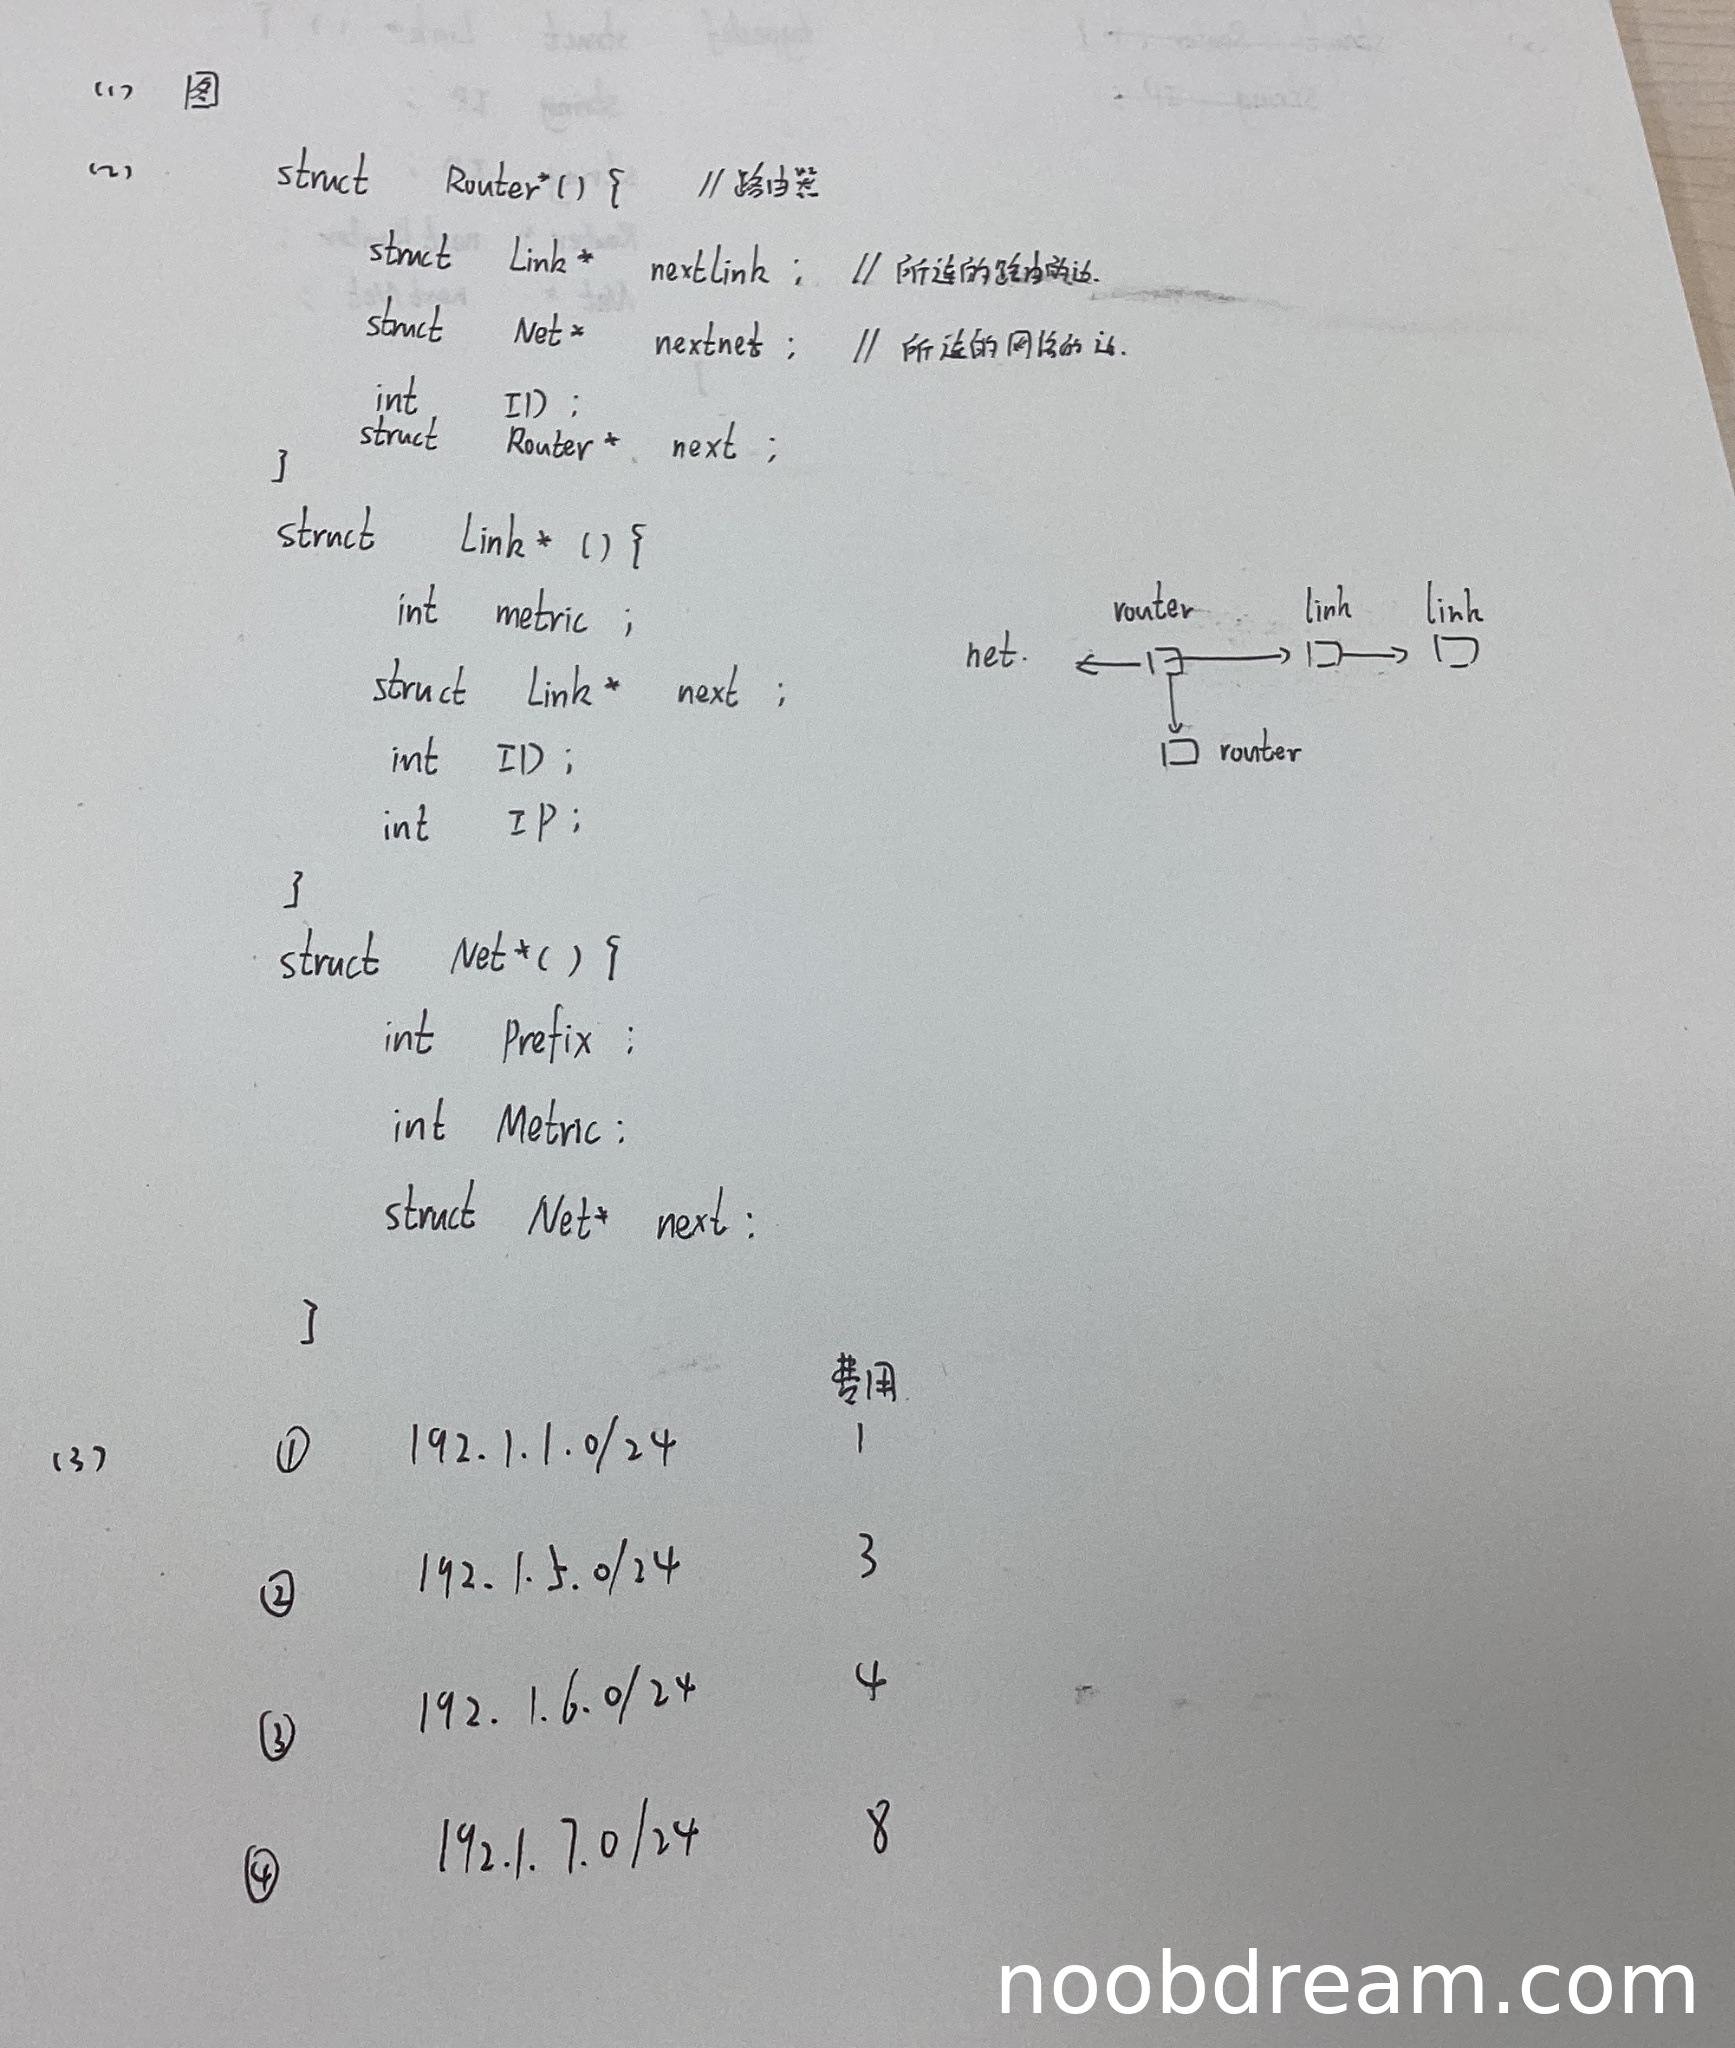 (1) 图
(2) struct Router*() { // 路由器
struct Link* nextlink ; // 所连的路由的边.
struct Net* nextnet ; // 所连的网络的边.
int ID ;
struct Router* next ;
}
struct Link* () {
int metric ;
struct Link* next ;
int ID ;
int IP ;
}
router link link
net.
router
struct Net*() {
int Prefix ;
int Metric ;
struct Net* next ;
}
费用
(3) ① 192.1.1.0/24 1
② 192.1.5.0/24 3
③ 192.1.6.0/24 4
④ 192.1.7.0/24 8
noobdream.com